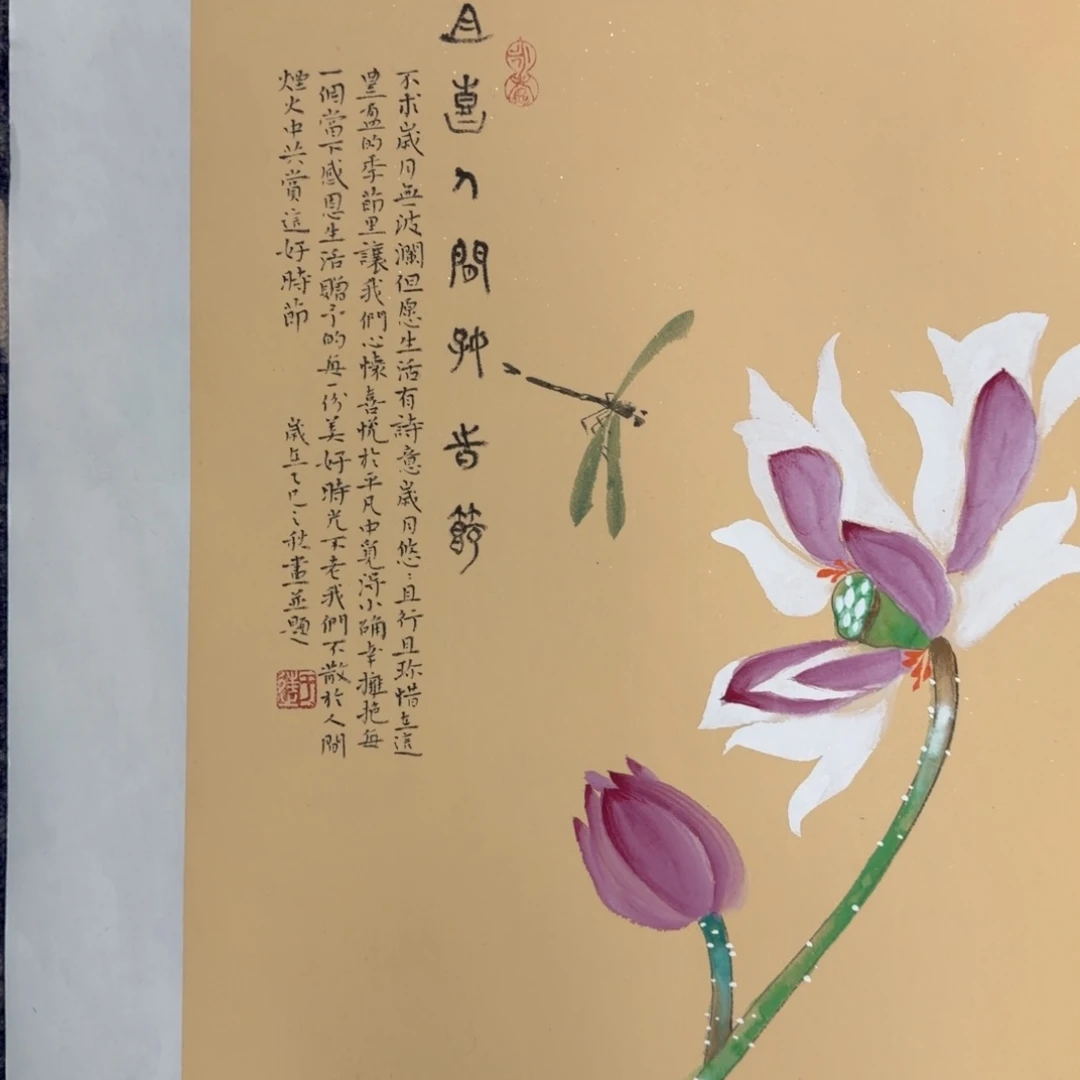 且喜人間好時節
不求歲月無波瀾但愿生活有詩意歲月悠々且行且珍惜在這
豐盈的季節里讓我們心懷喜悅於平凡中覓得小确幸擁抱每
一個當下感恩生活贈予的每一份美好時光不老我們不散於人間
煙火中共賞這好時節
歲在乙巳之秋畫並題